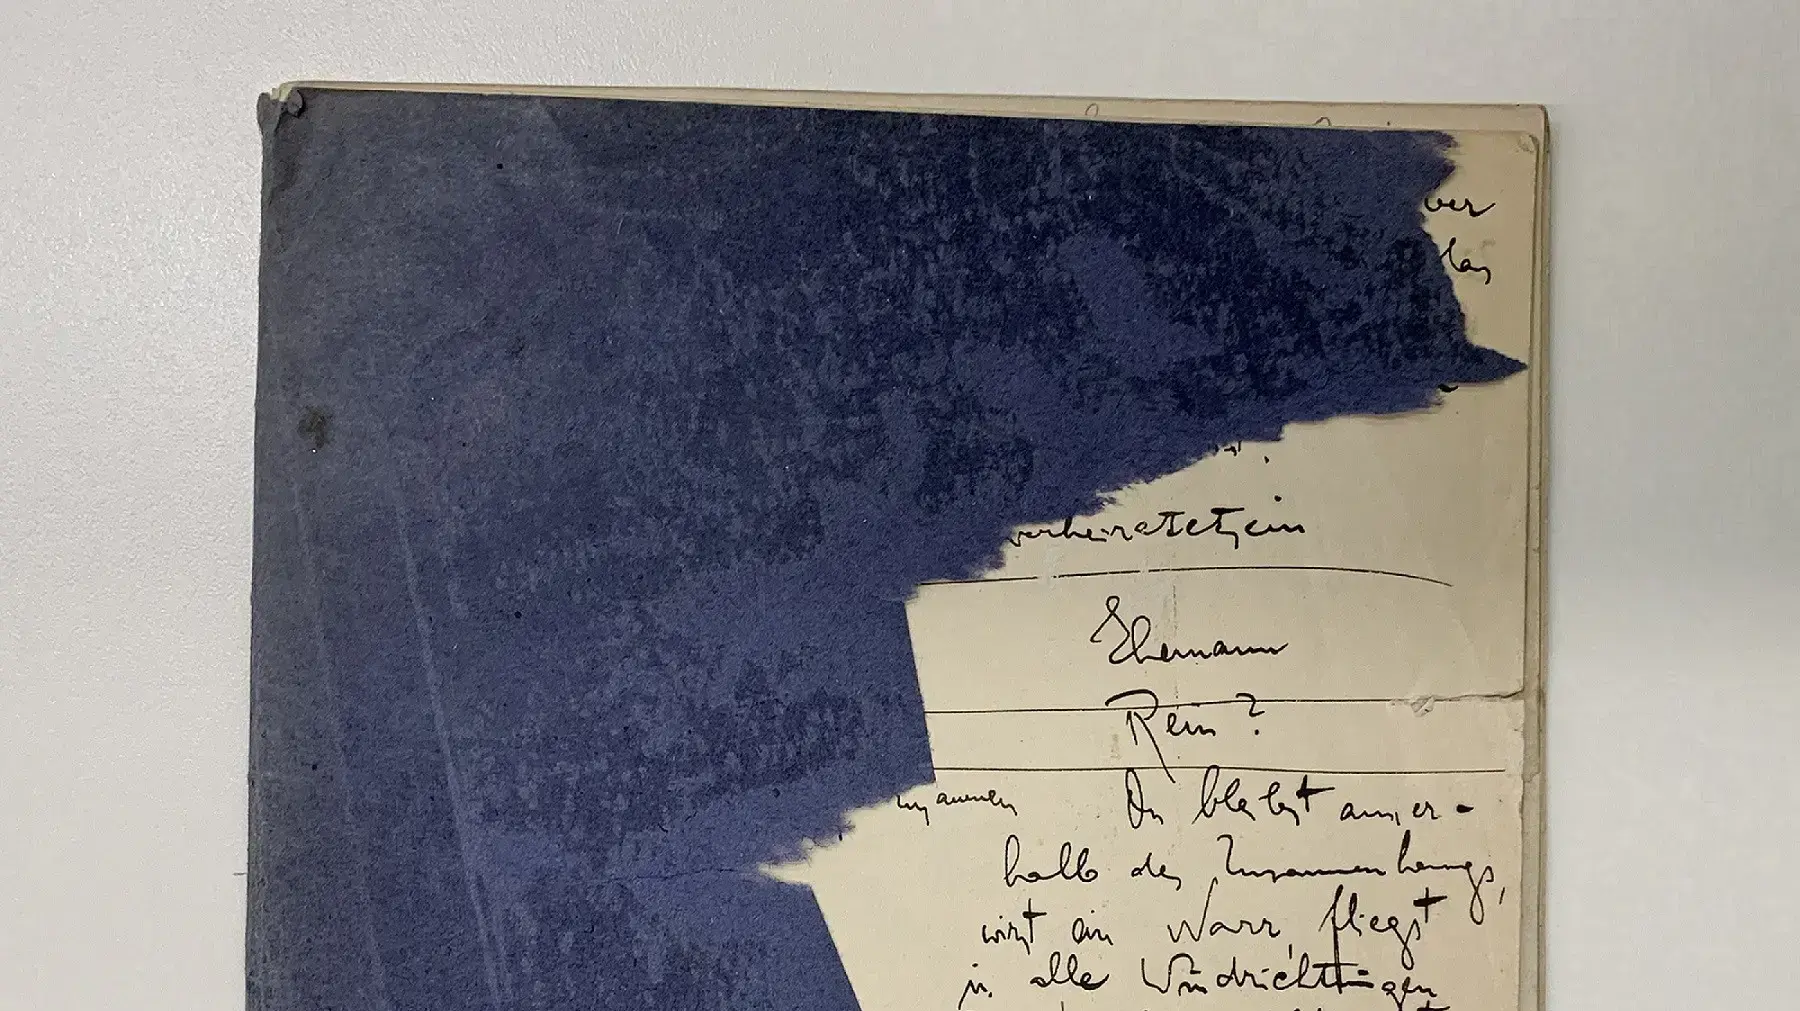 ver
das
verheiratet sein
Ehemann
Rein?
zusammen Du bleibst ausser-
halb des Zusammenhangs,
wirst ein Narr, fliegst
in alle Windrichtungen